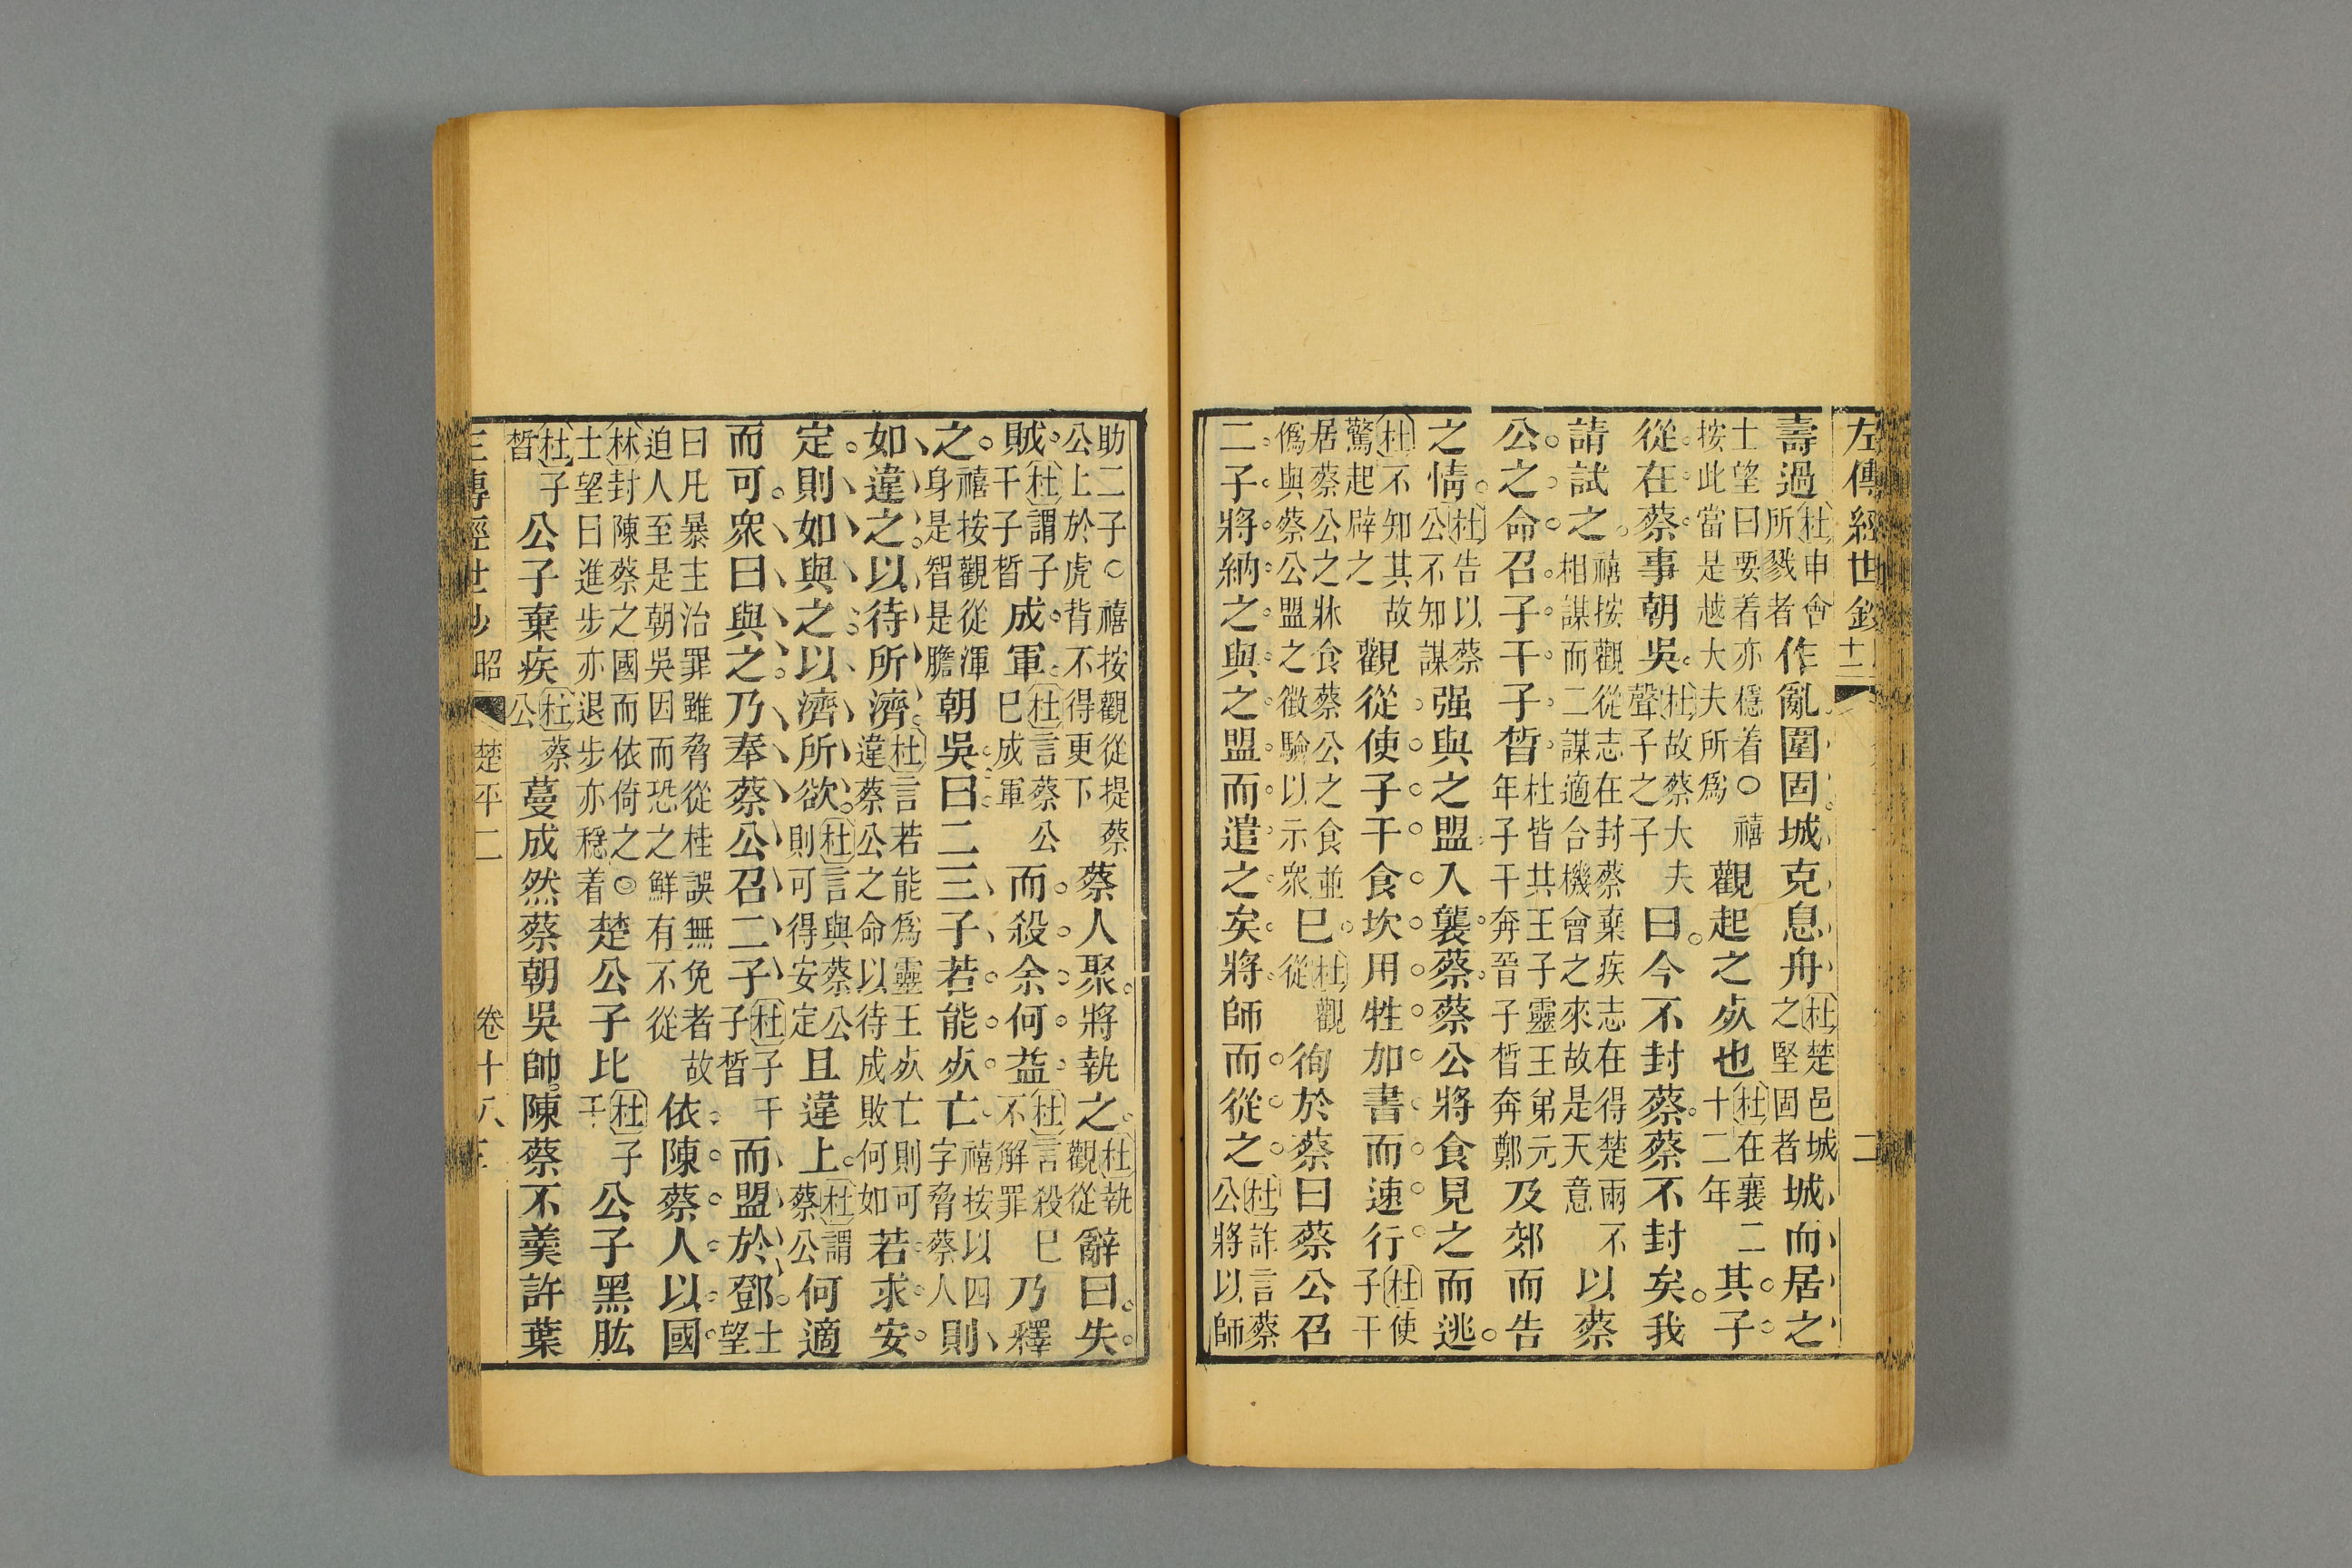 左傳經世鈔 十二 二
壽過杜申會所戮者作亂圍固城克息舟杜楚邑城之堅固者城而居之
士望曰要着亦穩着○禧按此當是越大夫所爲觀起之死也杜在襄二十二年其子
從在蔡事朝吳杜故蔡大夫聲子之子曰今不封蔡蔡不封矣我
請試之禧按觀從志在封蔡棄疾志在得楚兩不相謀而二謀適合機會之來故是天意以蔡
公之命召子干子皙杜皆共王子靈王弟元年子干奔晉子皙奔鄭及郊而告
之情杜告以蔡公不知謀强與之盟入襲蔡蔡公將食見之而逃
杜不知其故驚起辟之觀從使子干食坎用牲加書而速行杜使子干
居蔡公之牀食蔡公之食並僞與蔡公盟之徵驗以示衆巳杜觀從徇於蔡曰蔡公召
二子將納之與之盟而遣之矣將師而從之杜詐言蔡公將以師
助二子○禧按觀從提蔡公上於虎背不得更下蔡人聚將執之杜執觀從辭曰失
賊杜謂子干子皙成軍杜言蔡公巳成軍而殺余何益杜言殺巳不解罪乃釋
之禧按觀從渾身是智是膽朝吳曰二三子若能死亡禧按以四字脅蔡人則
如違之以待所濟杜言若能爲靈王死亡則可違蔡公之命以待成敗何如若求安
定則如與之以濟所欲杜言與蔡公則可得安定且違上杜謂蔡公何適
而可衆曰與之乃奉蔡公召二子杜子干子皙而盟於鄧士望
曰凡暴主治罪雖脅從桂誤無免者故迫人至是朝吳因而恐之鮮有不從依陳蔡人以國
林封陳蔡之國而依倚之◎士望曰進步亦退步亦穩着楚公子比杜子干公子黑肱
杜子皙公子棄疾杜蔡公蔓成然蔡朝吳帥陳蔡不羹許葉
左傳經世鈔 昭 楚平二 卷十八